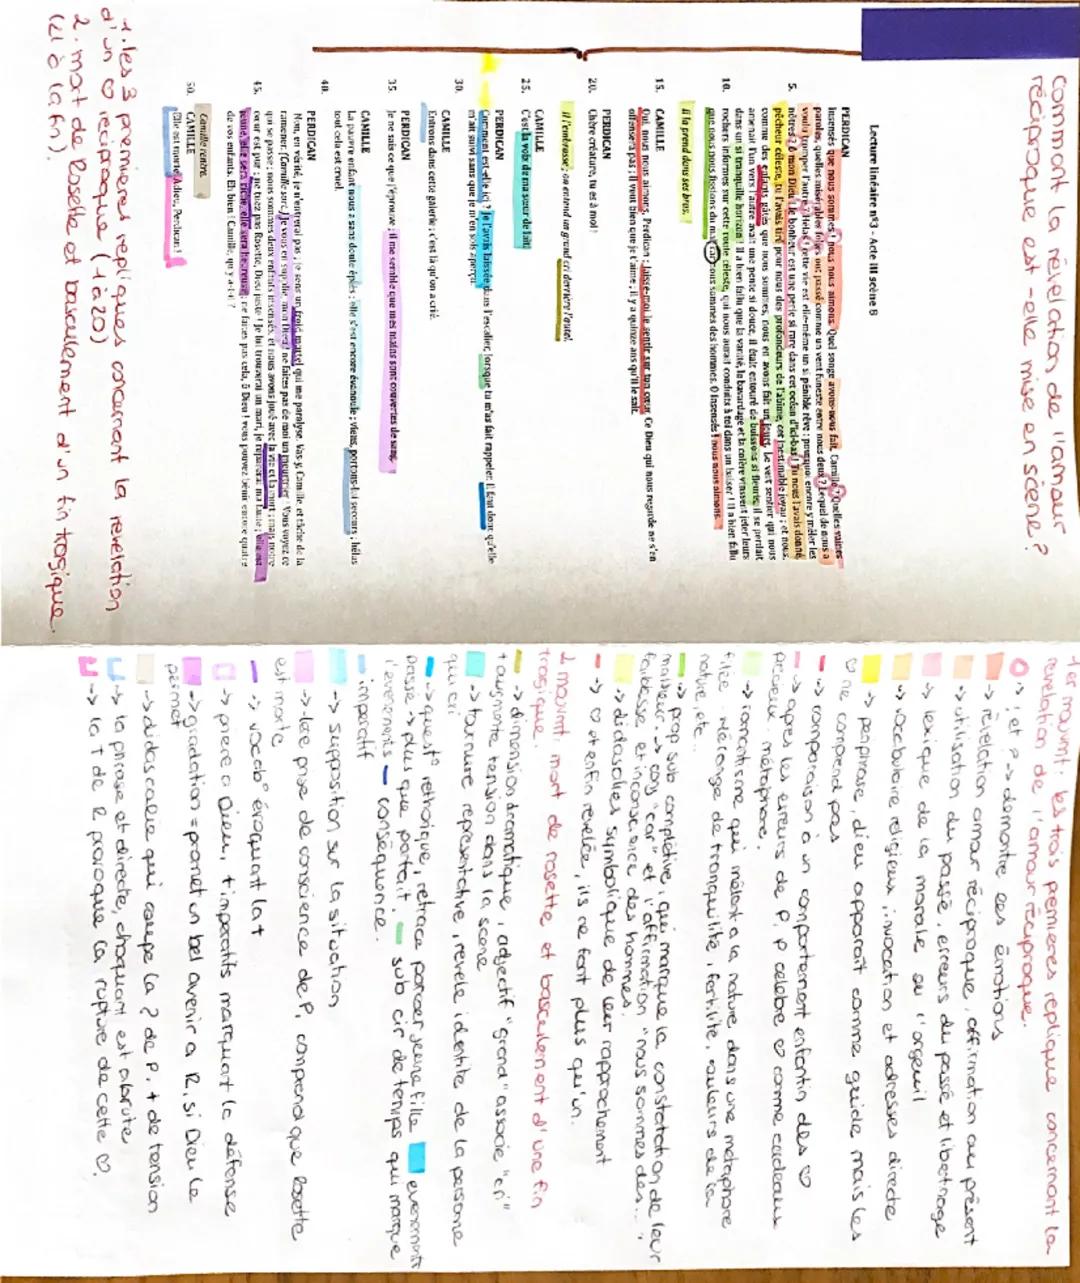 Comment la révélation de l'amour
réciproque est-elle mise en scène?
Lecture linéaire n°3 - Acte III scène 8
PERDICAN
Insensés que nous sommes ! nous nous aimons. Quel songe avons-nous fait, Camille ? Quelles vaines
paroles, quelles misérables folies ont passé comme un vent funeste entre nous deux ? Lequel de nous a
voulu tromper l'autre ? Hélas ! cette vie est elle-même un si pénible rêve : pourquoi encore y mêler les
5. nôtres ? ô mon Dieu ! le bonheur est une perle si rare dans cet océan d'ici-bas ! Tu nous l'avais donné,
pêcheur céleste, tu l'avais tiré pour nous des profondeurs de l'abîme, cet inestimable joyau ; et nous,
comme des enfants gâtés que nous sommes, nous en avons fait un jouet. Le vert sentier qui nous
amenait l'un vers l'autre avait une pente si douce, il était entouré de buissons si fleuris, il se perdait
dans un si tranquille horizon ! Il a bien fallu que la vanité, le bavardage et la colère vinssent jeter leurs
10. rochers informes sur cette route céleste, qui nous aurait conduits à toi dans un baiser ! Il a bien fallu
que nous nous fissions du mal, car nous sommes des hommes. O insensés ! nous nous aimons.
Il la prend dans ses bras.
CAMILLE
15. Oui, nous nous aimons, Perdican ; laisse-moi le sentir sur ton cœur. Ce Dieu qui nous regarde ne s'en
offensera pas ; il veut bien que je t'aime ; il y a quinze ans qu'il le sait.
PERDICAN
20. Chère créature, tu es à moi !
Il l'embrasse ; on entend un grand cri derrière l'autel.
CAMILLE
25. C'est la voix de ma sœur de lait.
PERDICAN
Comment est-elle ici ? Je l'avais laissée dans l'escalier, lorsque tu m'as fait rappeler. Il faut donc qu'elle
m'ait suivi sans que je m'en sois aperçu.
30.
CAMILLE
Entrons dans cette galerie ; c'est là qu'on a crié.
PERDICAN
35. Je ne sais ce que j'éprouve ; il me semble que mes mains sont couvertes de sang.
CAMILLE
La pauvre enfant nous a sans doute épiés ; elle s'est encore évanouie ; viens, portons-lui secours ; hélas
tout cela est cruel.
40.
PERDICAN
Non, en vérité, je n'entrerai pas ; je sens un froid mortel qui me paralyse. Vas-y, Camille et tâche de la
ramener. (Camille sort.) Je vous en supplie, mon Dieu ! ne faites pas de moi un meurtrier ! Vous voyez ce
qui se passe ; nous sommes deux enfants insensés, et nous avons joué avec la vie et la mort ; mais notre
45. cœur est pur ; ne tuez pas Rosette, Dieu juste ! Je lui trouverai un mari, je réparerai ma faute ; elle est
jeune, elle sera riche, elle sera heureuse ; ne faites pas cela, ô Dieu ! vous pouvez bénir encore quatre
de vos enfants. Eh bien ! Camille, qu'y a-t-il ?
Camille rentre.
50. CAMILLE
Elle est morte. Adieu, Perdican !
1. les 3 premieres repliques concernant la revelation
d'un ♡ reciproque (1 à 20)
2. mort de Rosette et basculement d'un fin tragique
(21 à la fin).
1er mouvmt: les trois premieres replique concernant la
revelation de l'amour réciproque.
-> ! et ? -> démontre ces émotions
-> révélation amour réciproque, affirmation au présent
-> utilisation du passé, erreurs du passé et libertinage
-> lexique de la morale ou l'orgueil
-> vocabulaire religieux, invocation et adresses directe
-> periphrase, dieu apparait comme guide mais les
♡ ne comprend pas
-> comparaison à un comportement enfantin des ♡
-> apres les erreurs de P, P celebre ♡ comme cadeaux
precieux. métaphore.
-> romantisme qui mêlent a la nature dans une métaphore
filée. Mélange de tranquilité, fertilité, couleurs de la
nature, etc..
-> prop sub complétive, qui marque la constatation de leur
malheur. -> conj "car" et l'affirmation "nous sommes des..."
faiblesse et inconscience des hommes.
-> didascalies symbolique de leur rapprochement
-> ♡ et enfin revelée, ils ne font plus qu'un.
2 mouvmt: mort de rosette et basculement d'une fin
tragique.
-> dimension dramatique, adjectif "grand" associe "cri"
augmente tension dans la scene
-> tournure representative, revele identite de la personne
qui cri
-> quest° rethorique, retrace parcoer jeune fille evenements
passe -> plus que parfait. sub cir de temps qui marque
l'evenements - conséquence.
imperatif
-> supposition sur la situation
-> 1ere prise de conscience de P, comprend que Rosette
est morte
-> vocab° évoquant la t
-> priere a Dieu, + imperatifs marquant la défense
-> gradation = promet un bel avenir a R, si Dieu le
permet
-> didascalie qui coupe la ? de P. + de tension
-> la phrase et directe, choquant est abrute
-> la T de R provoque la rupture de cette ♡.